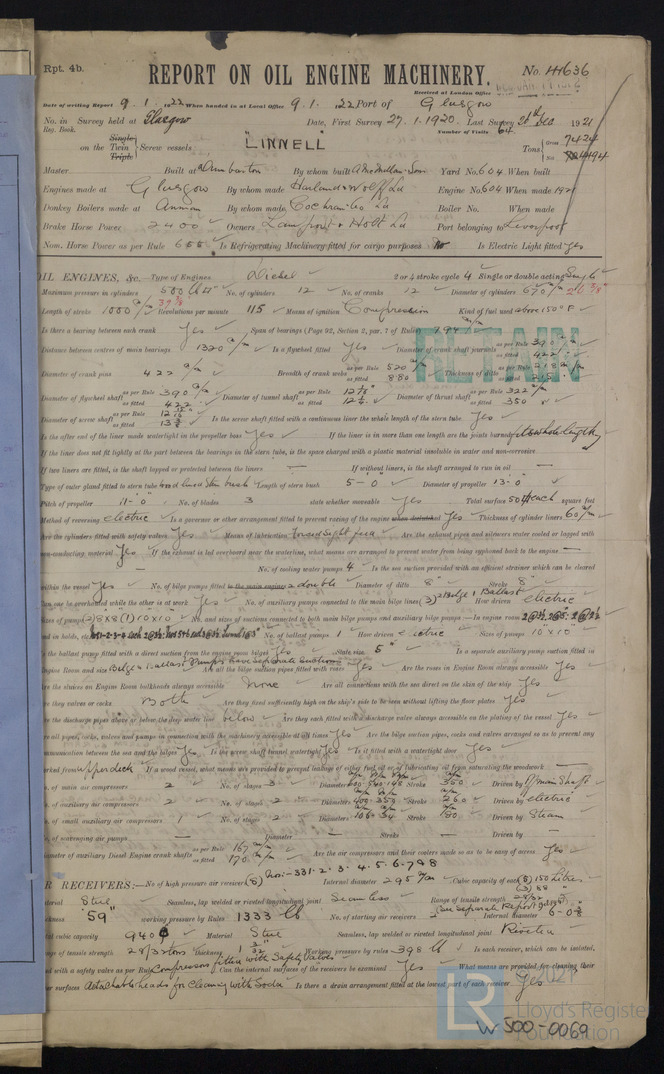 Rpt. 4b.
REPORT ON OIL ENGINE MACHINERY.
No. 41636
Received at London Office
Date of writing Report 9. 1. 1922 When handed in at Local Office 9. 1. 1922 Port of Glasgow
No. in Reg. Book. Survey held at Glasgow Date, First Survey 27. 1. 1920. Last Survey 1921
Number of Visits 64
on the Single Twin Triple Screw vessels "LINNELL" Tons Gross 7424 Net 4494
Master Built at Dumbarton By whom built A McMillan & Son Yard No. 604 When built
Engines made at Glasgow By whom made Harland & Wolff Ld Engine No. 604 When made 1921
Donkey Boilers made at Annan By whom made Cochran & Co Ld Boiler No. When made
Brake Horse Power 2400 Owners Lamport & Holt Ld Port belonging to Liverpool
Nom. Horse Power as per Rule 655 Is Refrigerating Machinery fitted for cargo purposes No Is Electric Light fitted Yes
OIL ENGINES, &c. Type of Engines Diesel 2 or 4 stroke cycle 4 Single or double acting Single
Maximum pressure in cylinders 500 lb No. of cylinders 12 No. of cranks 12 Diameter of cylinders 670 m/m 26 3/8"
Length of stroke 1000 m/m 39 3/8 Revolutions per minute 115 Means of ignition Compression Kind of fuel used above 150° F
Is there a bearing between each crank Yes Span of bearings (Page 92, Section 2, par. 7 of Rules) 794 m/m
RETAIN
Distance between centres of main bearings 1320 m/m Is a flywheel fitted Yes Diameter of crank shaft journals as per Rule 390 m/m as fitted 422
Diameter of crank pins 422 m/m Breadth of crank webs as per Rule 520 as fitted 880 Thickness of ditto as per Rule 218 m/m as fitted
Diameter of flywheel shaft as per Rule 390 m/m as fitted 422 Diameter of tunnel shaft as per Rule as fitted 12 1/2 Diameter of thrust shaft as per Rule 322 m/m as fitted 350
Diameter of screw shaft as per Rule as fitted Is the screw shaft fitted with a continuous liner the whole length of the stern tube Yes
Is the after end of the liner made watertight in the propeller boss Yes If the liner is in more than one length are the joints burned
If the liner does not fit tightly at the part between the bearings in the stern tube, is the space charged with a plastic material insoluble in water and non-corrosive
If two liners are fitted, is the shaft lapped or protected between the liners — If without liners, is the shaft arranged to run in oil —
Type of outer gland fitted to stern tube Length of stern bush 5'-0" Diameter of propeller 13'-0"
Pitch of propeller 11'-0" No. of blades 3 state whether moveable Yes Total surface 50 each square feet
Method of reversing electric Is a governor or other arrangement fitted to prevent racing of the engine when declutched Yes Thickness of cylinder liners 60 m/m
Are the cylinders fitted with safety valves Yes Means of lubrication forced & sight feed Are the exhaust pipes and silencers water cooled or lagged with
non-conducting material Yes If the exhaust is led overboard near the waterline, what means are arranged to prevent water being syphoned back to the engine —
No. of cooling water pumps 4 Is the sea suction provided with an efficient strainer which can be cleared
within the vessel Yes No. of bilge pumps fitted to the main engines 2 double Diameter of ditto 8" Stroke 8"
Can one be overhauled while the other is at work Yes No. of auxiliary pumps connected to the main bilge lines (3) 2 Bilge 1 Ballast How driven electric
Sizes of pumps (2) 8 x 8 (1) 10 x 10 No. and sizes of suctions connected to both main bilge pumps and auxiliary bilge pumps:—In engine room
and in holds, etc. No. of ballast pumps 1 How driven electric Sizes of pumps 10 x 10
Is the ballast pump fitted with a direct suction from the engine room bilges Yes State size 5" Is a separate auxiliary pump suction fitted in
Engine Room and size Bilge & Ballast Pumps have separate suctions Are all the bilge suction pipes fitted with roses Yes Are the roses in Engine Room always accessible Yes
Are the sluices on Engine Room bulkheads always accessible None Are all connections with the sea direct on the skin of the ship Yes
Are they valves or cocks Both Are they fixed sufficiently high on the ship's side to be seen without lifting the floor plates Yes
Are the discharge pipes above or below the deep water line below Are they each fitted with a discharge valve always accessible on the plating of the vessel Yes
Are all pipes, cocks, valves and pumps in connection with the machinery accessible at all times Yes Are the bilge suction pipes, cocks and valves arranged so as to prevent any
communication between the sea and the bilges Yes Is the screw shaft tunnel watertight Yes Is it fitted with a watertight door Yes
worked from upper deck If a wood vessel, what means are provided to prevent leakage of either fuel oil or lubricating oil from saturating the woodwork —
No. of main air compressors 2 No. of stages 3 Diameters Stroke 350 Driven by Main Shaft
No. of auxiliary air compressors 2 No. of stages 2 Diameters 400-350 Stroke 260 Driven by electric
No. of small auxiliary air compressors 1 No. of stages 2 Diameters 106-34 Stroke 180 Driven by Steam
No. of scavenging air pumps — Diameter — Stroke — Driven by —
Diameter of auxiliary Diesel Engine crank shafts as per Rule 167 m/m as fitted 170 m/m Are the air compressors and their coolers made so as to be easy of access Yes
AIR RECEIVERS:— No. of high pressure air receivers (8) Nos - 331 - 2 - 3 - 4 - 5 - 6 - 7 & 8 Internal diameter 295 m/m Cubic capacity of each (5) 150 Litres (3) 88 "
Material Steel Seamless, lap welded or riveted longitudinal joint Seamless Range of tensile strength 28/32
thickness 59" working pressure by Rules 1333 lb No. of starting air receivers 2 (See separate Report) Internal diameter 6-0
Total cubic capacity 940 Material Steel Seamless, lap welded or riveted longitudinal joint Riveted
Range of tensile strength 28/32 tons thickness 1 3/32 Working pressure by rules 398 lb Is each receiver, which can be isolated,
fitted with a safety valve as per Rule Compressors fitted with Safety Valves Can the internal surfaces of the receivers be examined Yes What means are provided for cleaning their
inner surfaces Detachable heads for cleaning with Soda Is there a drain arrangement fitted at the lowest part of each receiver Yes
LR
Lloyd's Register
Foundation
W500-0069